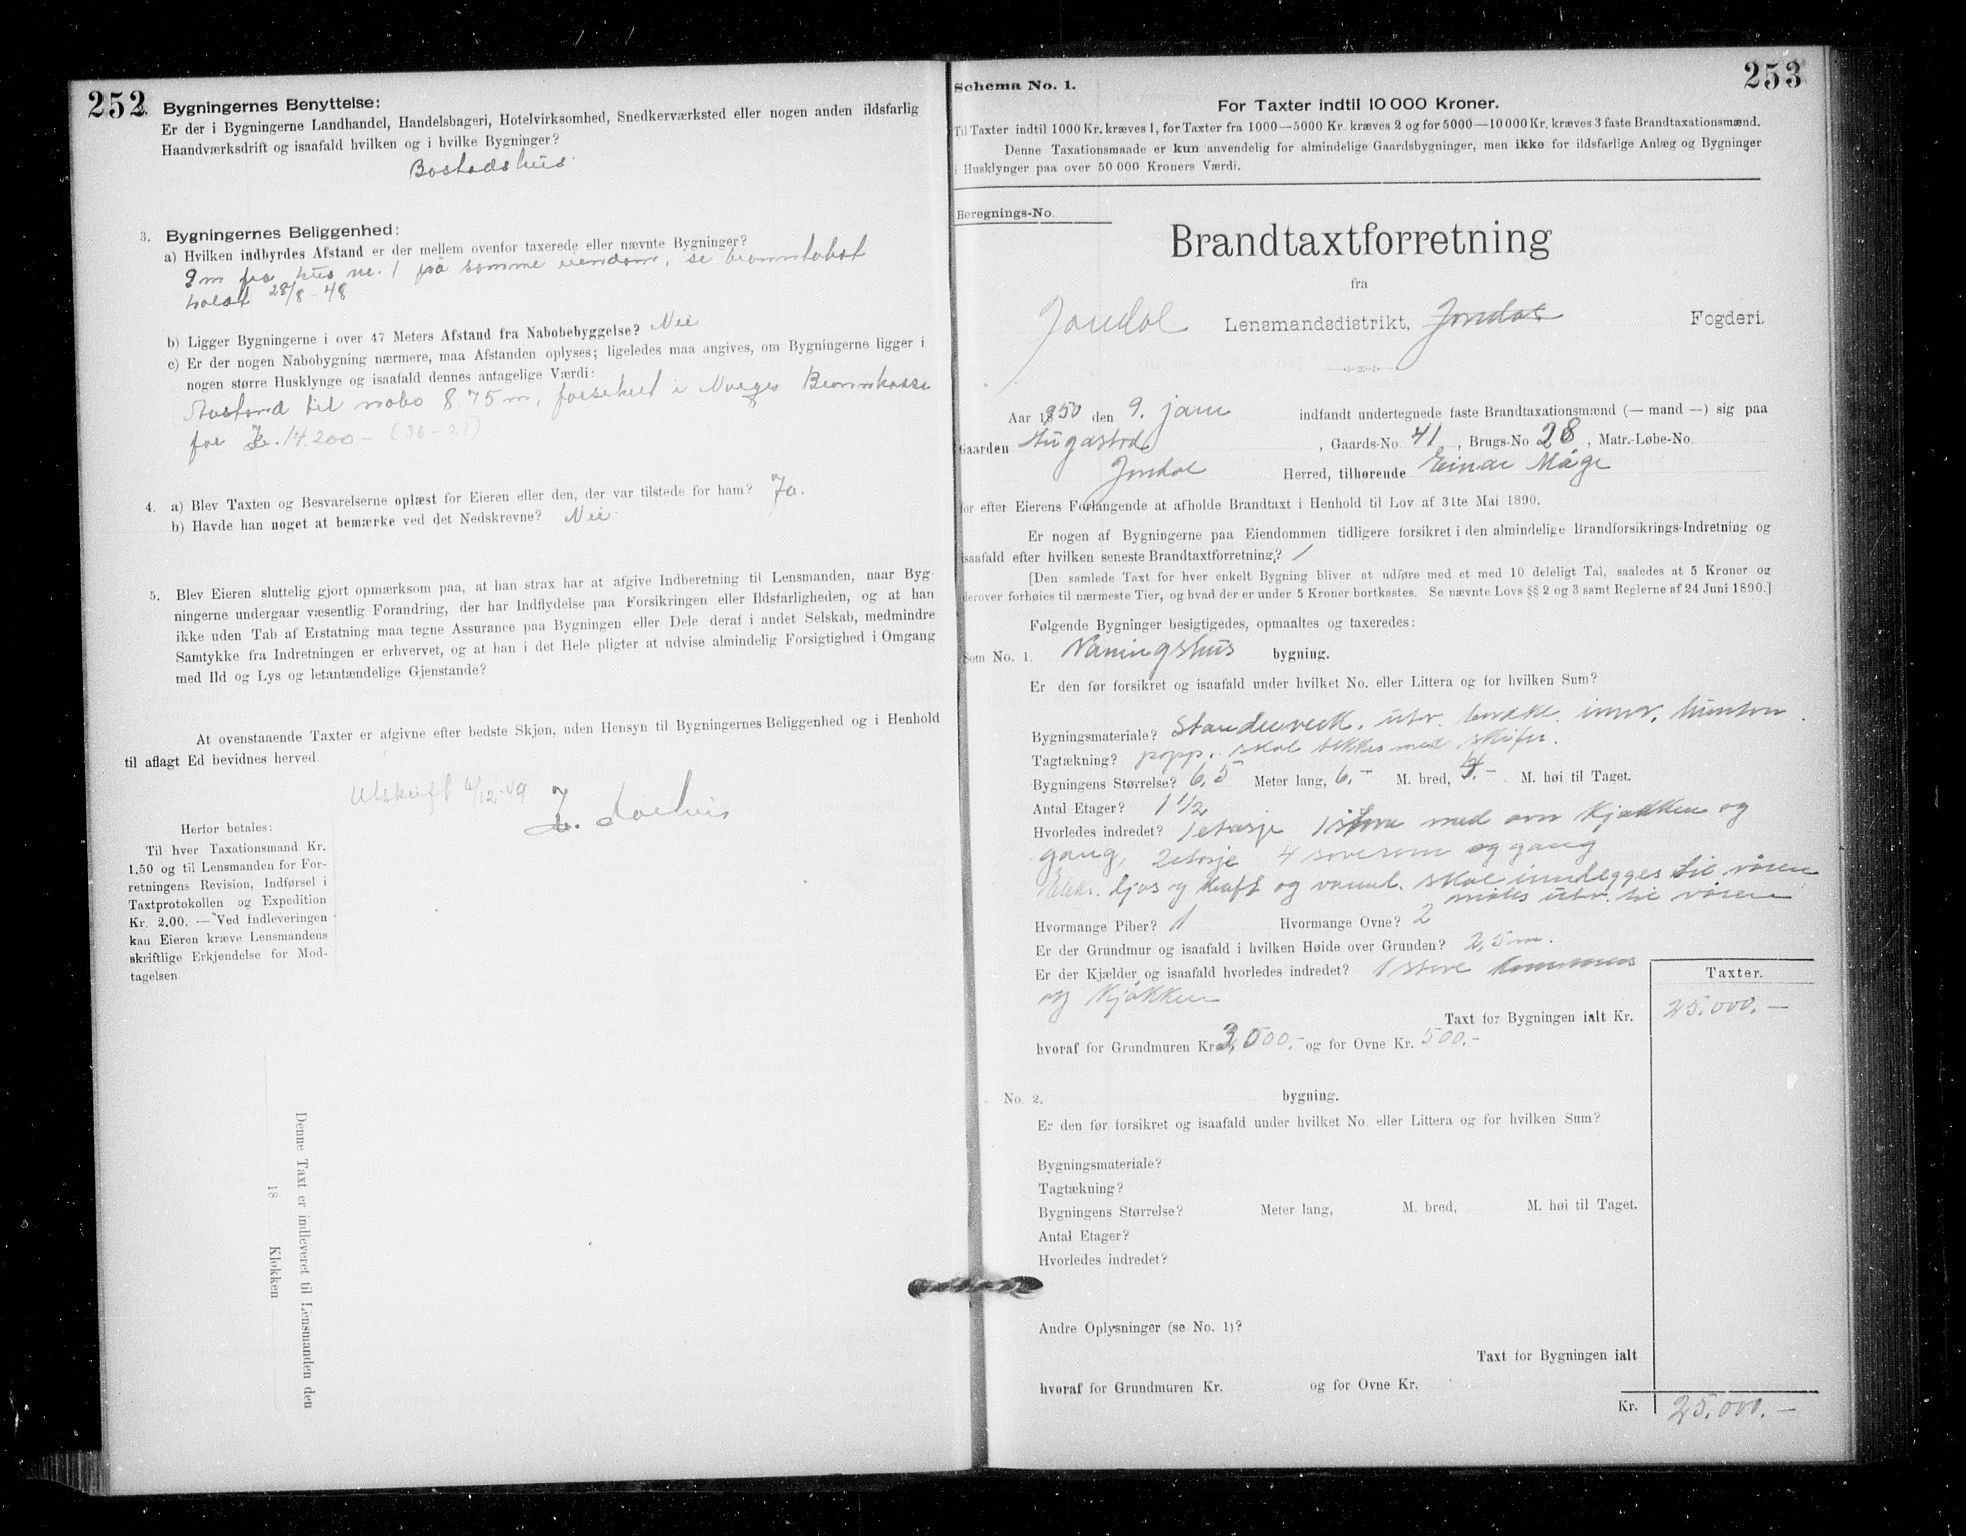 252
Bygningernes Benyttelse:
Er der i Bygningerne Landhandel, Handelsbageri, Hotelvirksomhed, Snedkerværksted eller nogen anden ildsfarlig
Haandværksdrift og isaafald hvilken og i hvilke Bygninger?
Bostadshus.
3. Bygningernes Beliggenhed:
a) Hvilken indbyrdes Afstand er der mellem ovenfor taxerede eller nævnte Bygninger?
9 m fra hus nr. 1 på samme eiendom, se branntakst
holdt 28/8-48
b) Ligger Bygningerne i over 47 Meters Afstand fra Nabobebyggelse? Nei
c) Er der nogen Nabobygning nærmere, maa Afstanden oplyses; ligeledes maa angives, om Bygningerne ligger i
nogen større Husklynge og isaafald dennes antagelige Værdi:
Avstand til nabo 8.75 m, forsikret i Norges Brannkasse
for kr. 14.200 - (36-21)
4. a) Blev Taxten og Besvarelserne oplæst for Eieren eller den, der var tilstede for ham? Ja.
b) Havde han noget at bemærke ved det Nedskrevne? Nei.
5. Blev Eieren sluttelig gjort opmærksom paa, at han strax har at afgive Indberetning til Lensmanden, naar Byg-
ningerne undergaar væsentlig Forandring, der har Indflydelse paa Forsikringen eller Ildsfarligheden, og at han
ikke uden Tab af Erstatning maa tegne Assurance paa Bygningen eller Dele deraf i andet Selskab, medmindre
Samtykke fra Indretningen er erhvervet, og at han i det Hele pligter at udvise almindelig Forsigtighed i Omgang
med Ild og Lys og letantændelige Gjenstande?
At ovenstaaende Taxter er afgivne efter bedste Skjøn, uden Hensyn til Bygningernes Beliggenhed og i Henhold
til aflagt Ed bevidnes herved.
Utskrift 6/12-49.
Herfor betales:
Til hver Taxationsmand Kr.
1.50 og til Lensmanden for For-
retningens Revision, Indførsel i
Taxtprotokollen og Expedition
Kr. 2.00. — Ved Indleveringen
kan Eieren kræve Lensmandens
skriftlige Erkjendelse for Mod-
tagelsen.
Denne Taxt er indleveret til Lensmanden den
18 Klokken
253
Schema No. 1.
For Taxter indtil 10 000 Kroner.
Til Taxter indtil 1000 Kr. kræves 1, for Taxter fra 1000—5000 Kr. kræves 2 og for 5000—10 000 Kr. kræves 3 faste Brandtaxationsmænd.
Denne Taxationsmaade er kun anvendelig for almindelige Gaardsbygninger, men ikke for ildsfarlige Anlæg og Bygninger
i Husklynger paa over 50 000 Kroners Værdi.
Beregnings-No.
Brandtaxtforretning
fra
Jondal Lensmandsdistrikt, Jondal Fogderi.
Aar 1950 den 9. jan indfandt undertegnede faste Brandtaxationsmænd (— mand —) sig paa
Gaarden , Gaards-No. 41, Brugs-No 28, Matr.-Løbe-No.
Jondal Herred, tilhørende Einar Måge
for efter Eierens Forlangende at afholde Brandtaxt i Henhold til Lov af 31te Mai 1890.
Er nogen af Bygningerne paa Eiendommen tidligere forsikret i den almindelige Brandforsikrings-Indretning og
isaafald efter hvilken seneste Brandtaxtforretning? /
[Den samlede Taxt for hver enkelt Bygning bliver at udføre med et med 10 deleligt Tal, saaledes at 5 Kroner og
derover forhøies til nærmeste Tier, og hvad der er under 5 Kroner bortkastes. Se nævnte Lovs §§ 2 og 3 samt Reglerne af 24 Juni 1890.]
Følgende Bygninger besigtigedes, opmaaltes og taxeredes:
Som No. 1. Våningshus bygning.
Er den før forsikret og isaafald under hvilket No. eller Littera og for hvilken Sum?
Bygningsmateriale? Standerverk. utv. bordkl. innv. hunton.
Tagtækning? papp, skal tekkes med skifer.
Bygningens Størrelse? 6,5 Meter lang, 6,- M. bred, 4.- M. høi til Taget.
Antal Etager? 1 1/2
Hvorledes indredet? 1 etasje 1 stove med ovn kjøkken og
gang, 2 etasje 4 soverom og gang
Elekt. ljos og kraft og vannl. skal innlegges til våren
males utv. til våren
Hvormange Piber? 1 Hvormange Ovne? 2
Er der Grundmur og isaafald i hvilken Høide over Grunden? 2,5 m.
Er der Kjælder og isaafald hvorledes indredet? 1 stove
og kjøkken
Taxter.
Taxt for Bygningen ialt Kr. 25.000.-
hvoraf for Grundmuren Kr. 3,000.- og for Ovne Kr. 500.-
No. 2. bygning.
Er den før forsikret og isaafald under hvilket No. eller Littera og for hvilken Sum?
Bygningsmateriale?
Tagtækning?
Bygningens Størrelse? Meter lang, M. bred, M. høi til Taget.
Antal Etager?
Hvorledes indredet?
Andre Oplysninger (se No. 1)?
Taxt for Bygningen ialt
hvoraf for Grundmuren Kr. og for Ovne Kr.
Kr. 25.000.-